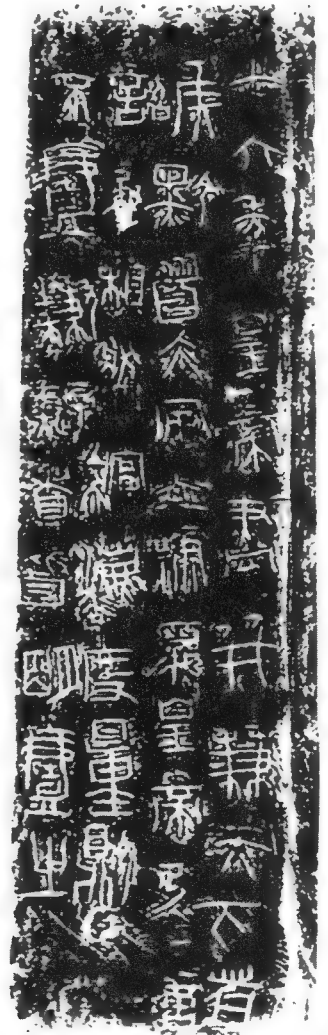 廿六年皇帝盡并兼天下諸
侯黔首大安立號爲皇帝乃
詔丞相狀綰灋度量則
不壹歉疑者皆明壹之